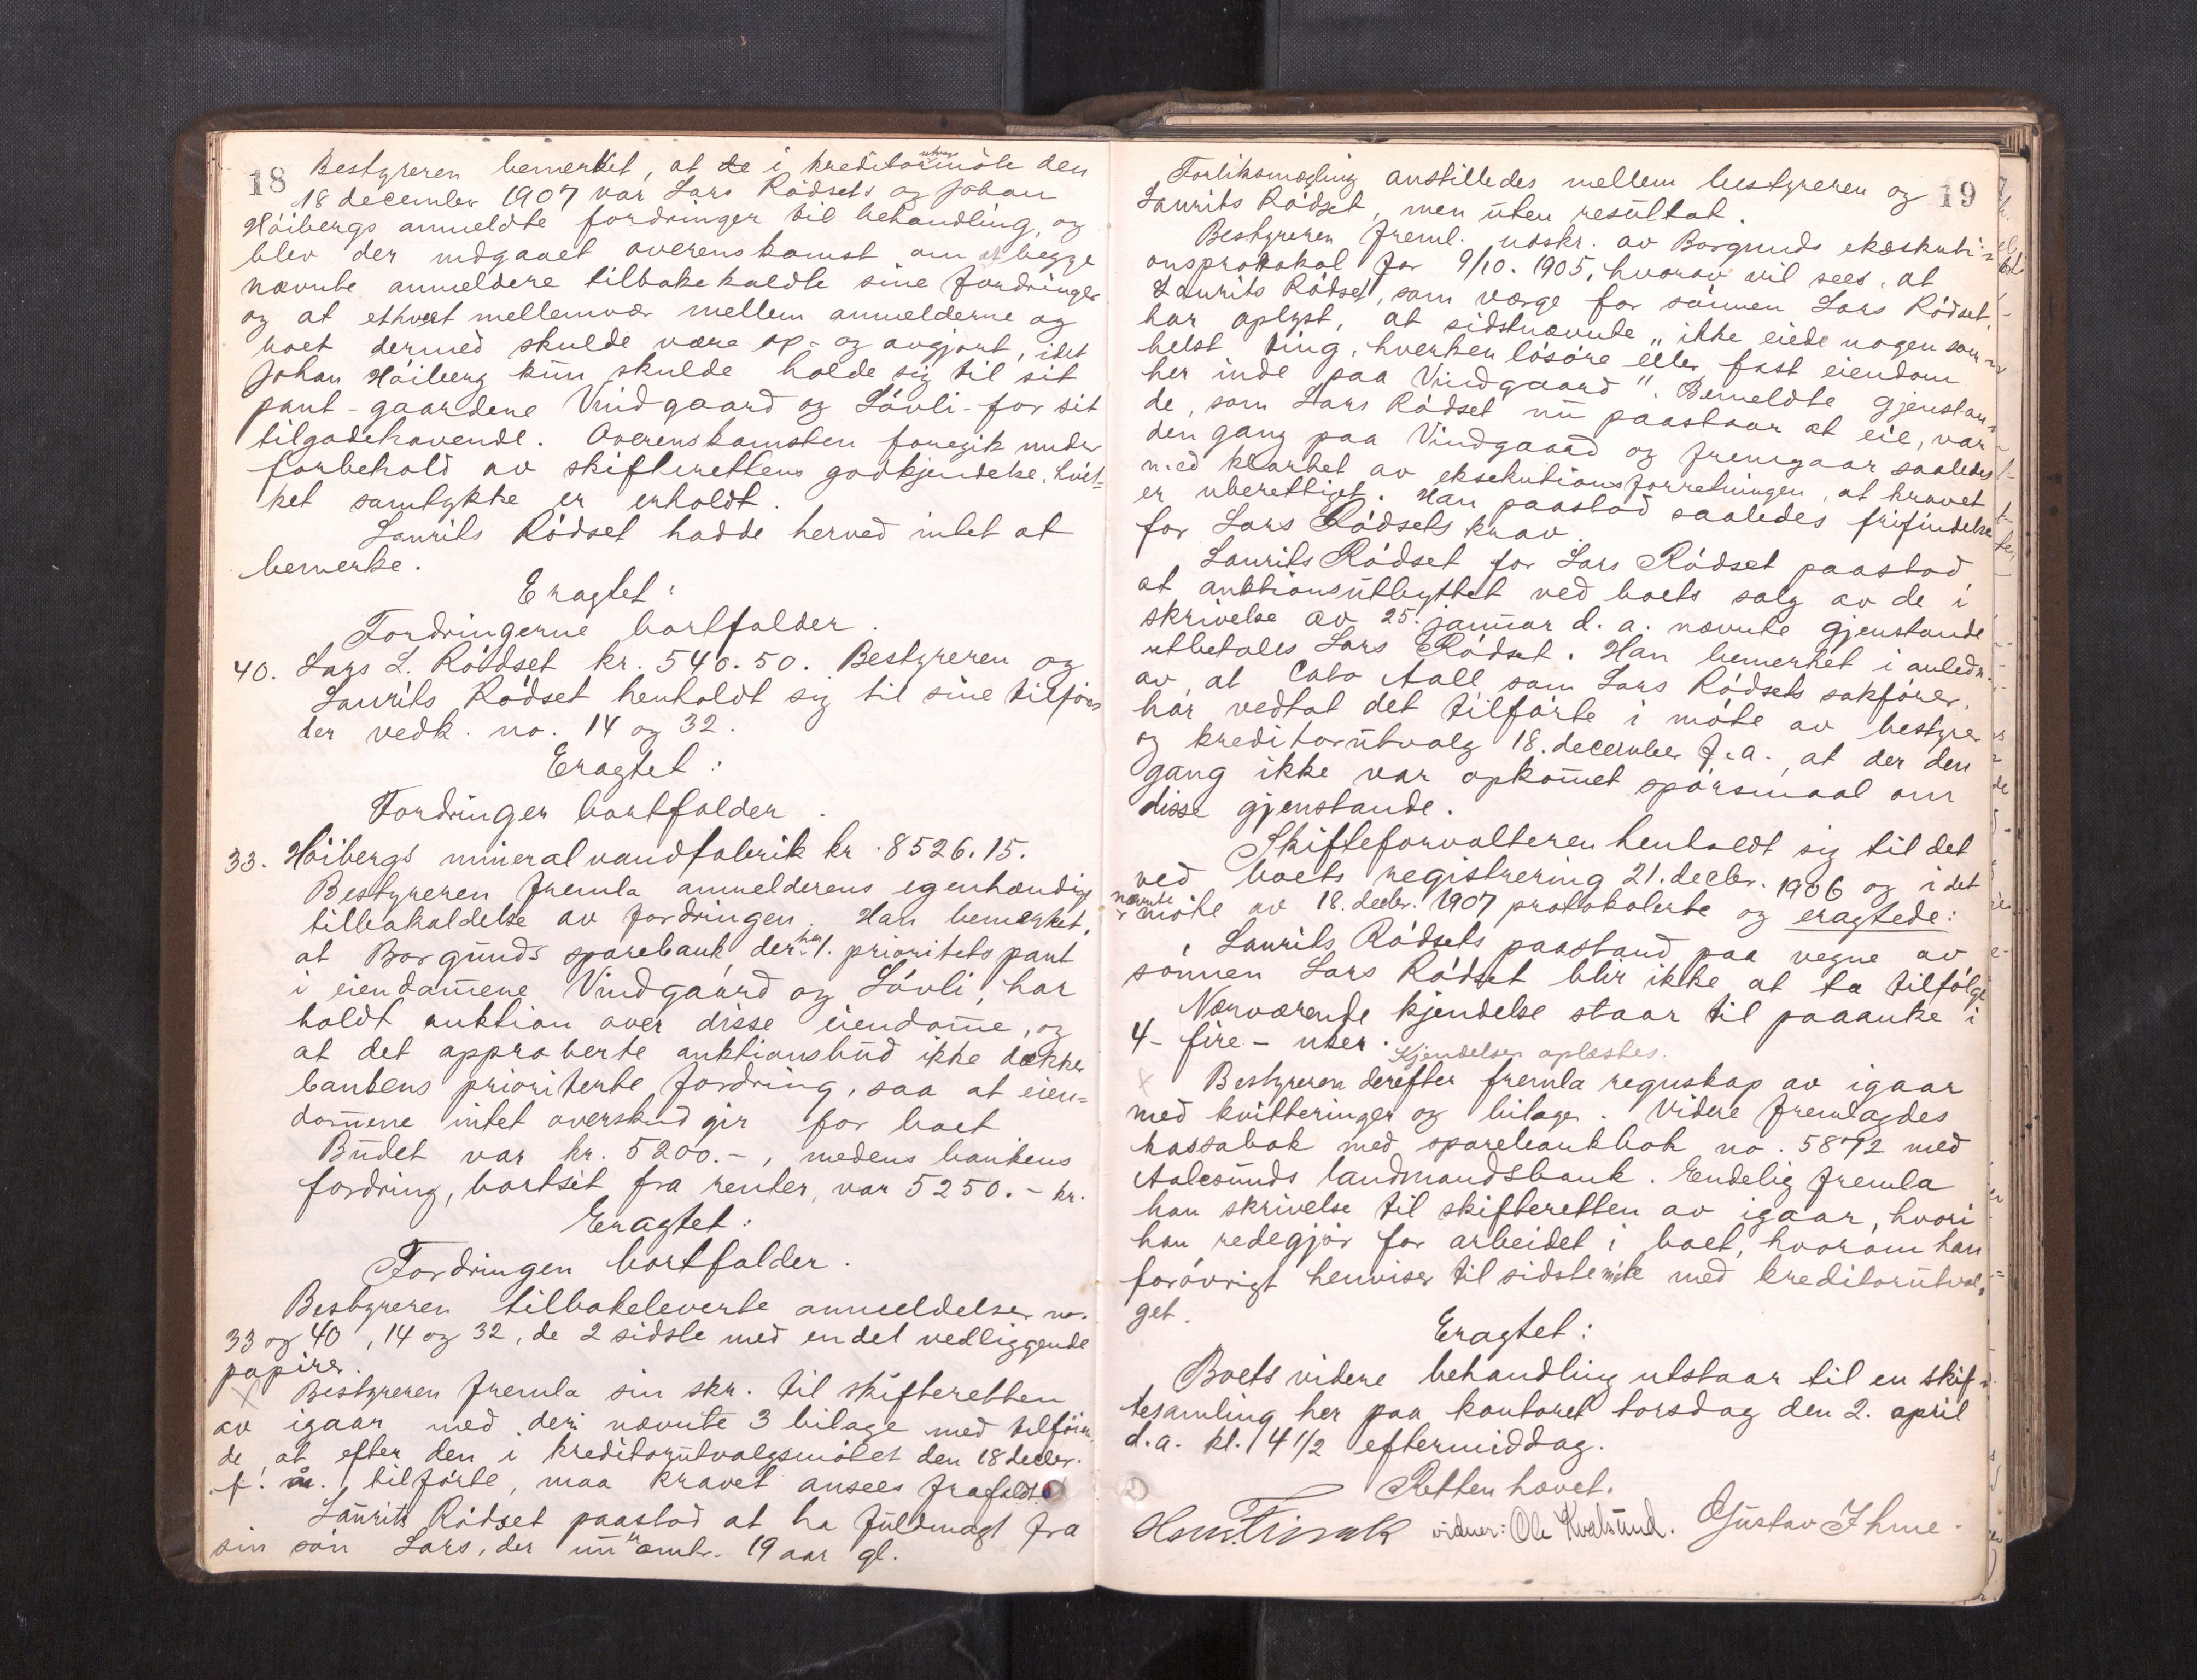 18
Bestyreren bemerket, at de i kreditormöte den
18 december 1907 var Lars Rödsets og Johan
Höibergs anmeldte fordringer til behandling, og
blev der indgaaet overenskomst om at begge
nævnte anmeldere tilbakekaldte sine fordringer
og at ethvert mellemvær mellem anmelderne og
boet dermed skulde være op- og avgjort, idet
Johan Höiberg kun skulde holde sig til sit
pant - gaardene Vindgaard og Lövli - for sit
tilgodehavende. Overenskomsten foregik under
forbehold av skifterettens godkjendelse, hvil=
ket samtykke er erholdt.
Laurits Rödset hadde herved intet at
bemerke.
Eragtet:
Fordringerne bortfalder.
40. Lars L. Rödset kr. 540.50. Bestyreren og
Laurits Rödset henholdt sig til sine tilförs-
der vedk. no. 14 og 32.
Eragtet:
Fordringer bortfalder.
33. Höibergs mineralvandfabrik kr. 8526.15.
Bestyreren fremla anmelderens egenhændige
tilbakaldelse av fordringen. Han bemerket,
at Borgunds sparebank, der har 1. prioritets pant
i eiendommene Vindgaard og Lövli, har
holdt auktion over disse eiendomme, og
at det approberte auktionsbud ikke dækker
bankens prioriterte fordring, saa at eien=
dommene intet overskud gir for boet
Budet var kr. 5200.-, medens bankens
fordring, bortset fra renter, var 5250.- kr.
Eragtet:
Fordringen bortfalder.
Bestyreren tilbakeleverte anmeldelser no.
33 og 40, 14 og 32, de 2 sidste med endel vedliggende
papirer.
Bestyreren fremla sin skr. til skifteretten
av igaar med deri nævnte 3 bilage med tilförn-
de, at efter den i kreditorutvalgsmötet den 18 decbr.
f. å. tilförte, maa kravet ansees frafaldt.
Laurits Rödset paastod at ha fuldmagt fra
sin sön Lars, der nu er omtr. 19 aar gl.
19
Forliksmægling anstilledes mellem bestyreren og
Laurits Rödset, men uten resultat.
Bestyreren freml. utskr. av Borgunds ekseskuti=
onsprotokol for 9/10. 1905, hvorav vil sees, at
Laurits Rödset, som værge for sönnen Lars Rödset,
har oplyst, at sidstnævnte "ikke eiede nogen som
helst ting, hverken lösöre eller fast eiendom
her inde paa Vindgaard". Bemeldte gjenstan=
de, som Lars Rödset nu paastaar at eie, var
den gang paa Vindgaard og fremgaar saaledes
med klarhet av eksekutionsforretningen, at kravet
er uberettiget. Han paastod saaledes frifindelse
for Lars Rödsets krav.
Laurits Rödset for Lars Rödset paastod,
at auktionsutbyttet ved boets salg av de i
skrivelse av 25. januar d. a. nævnte gjenstande
utbetales Lars Rödset. Han bemerket i anledn.
av, at Cato Aall som Lars Rödsets sakförer,
har vedtat det tilförte i möte av bestyrer
og kreditorutvalg 18. december f. a., at der den
gang ikke var opkommet spörsmaal om
disse gjenstande.
Skifteforvalteren henholdt sig til det
ved boets registrering 21. decbr. 1906 og i det
nævnte möte av 18. decbr. 1907 protokolerte og eragtede:
Laurits Rödsets paastand paa vegne av
sönnen Lars Rödset blir ikke at ta tilfölge
Nærværende kjendelse staar til paaanke i
4 - fire - uker. Kjendelsen oplæstes.
Bestyreren derefter fremla regnskap av igaar
med kvitteringer og bilage. Videre fremlagdes
kassabok med sparebankbok no. 5872 med
Aalesunds landmandsbank. Endelig fremla
han skrivelse til skifteretten av igaar, hvori
han redegjör for arbeidet i boet, hvorom han
forövrigt henviser til sidste möte med kreditorutval=
get.
Eragtet:
Boets videre behandling utstaar til en skif=
tesamling her paa kontoret torsdag den 2. april
d.a. kl. 4 1/2 eftermiddag.
Retten hævet.
vidner: Ole Kvalsund. Gustav Ihme.